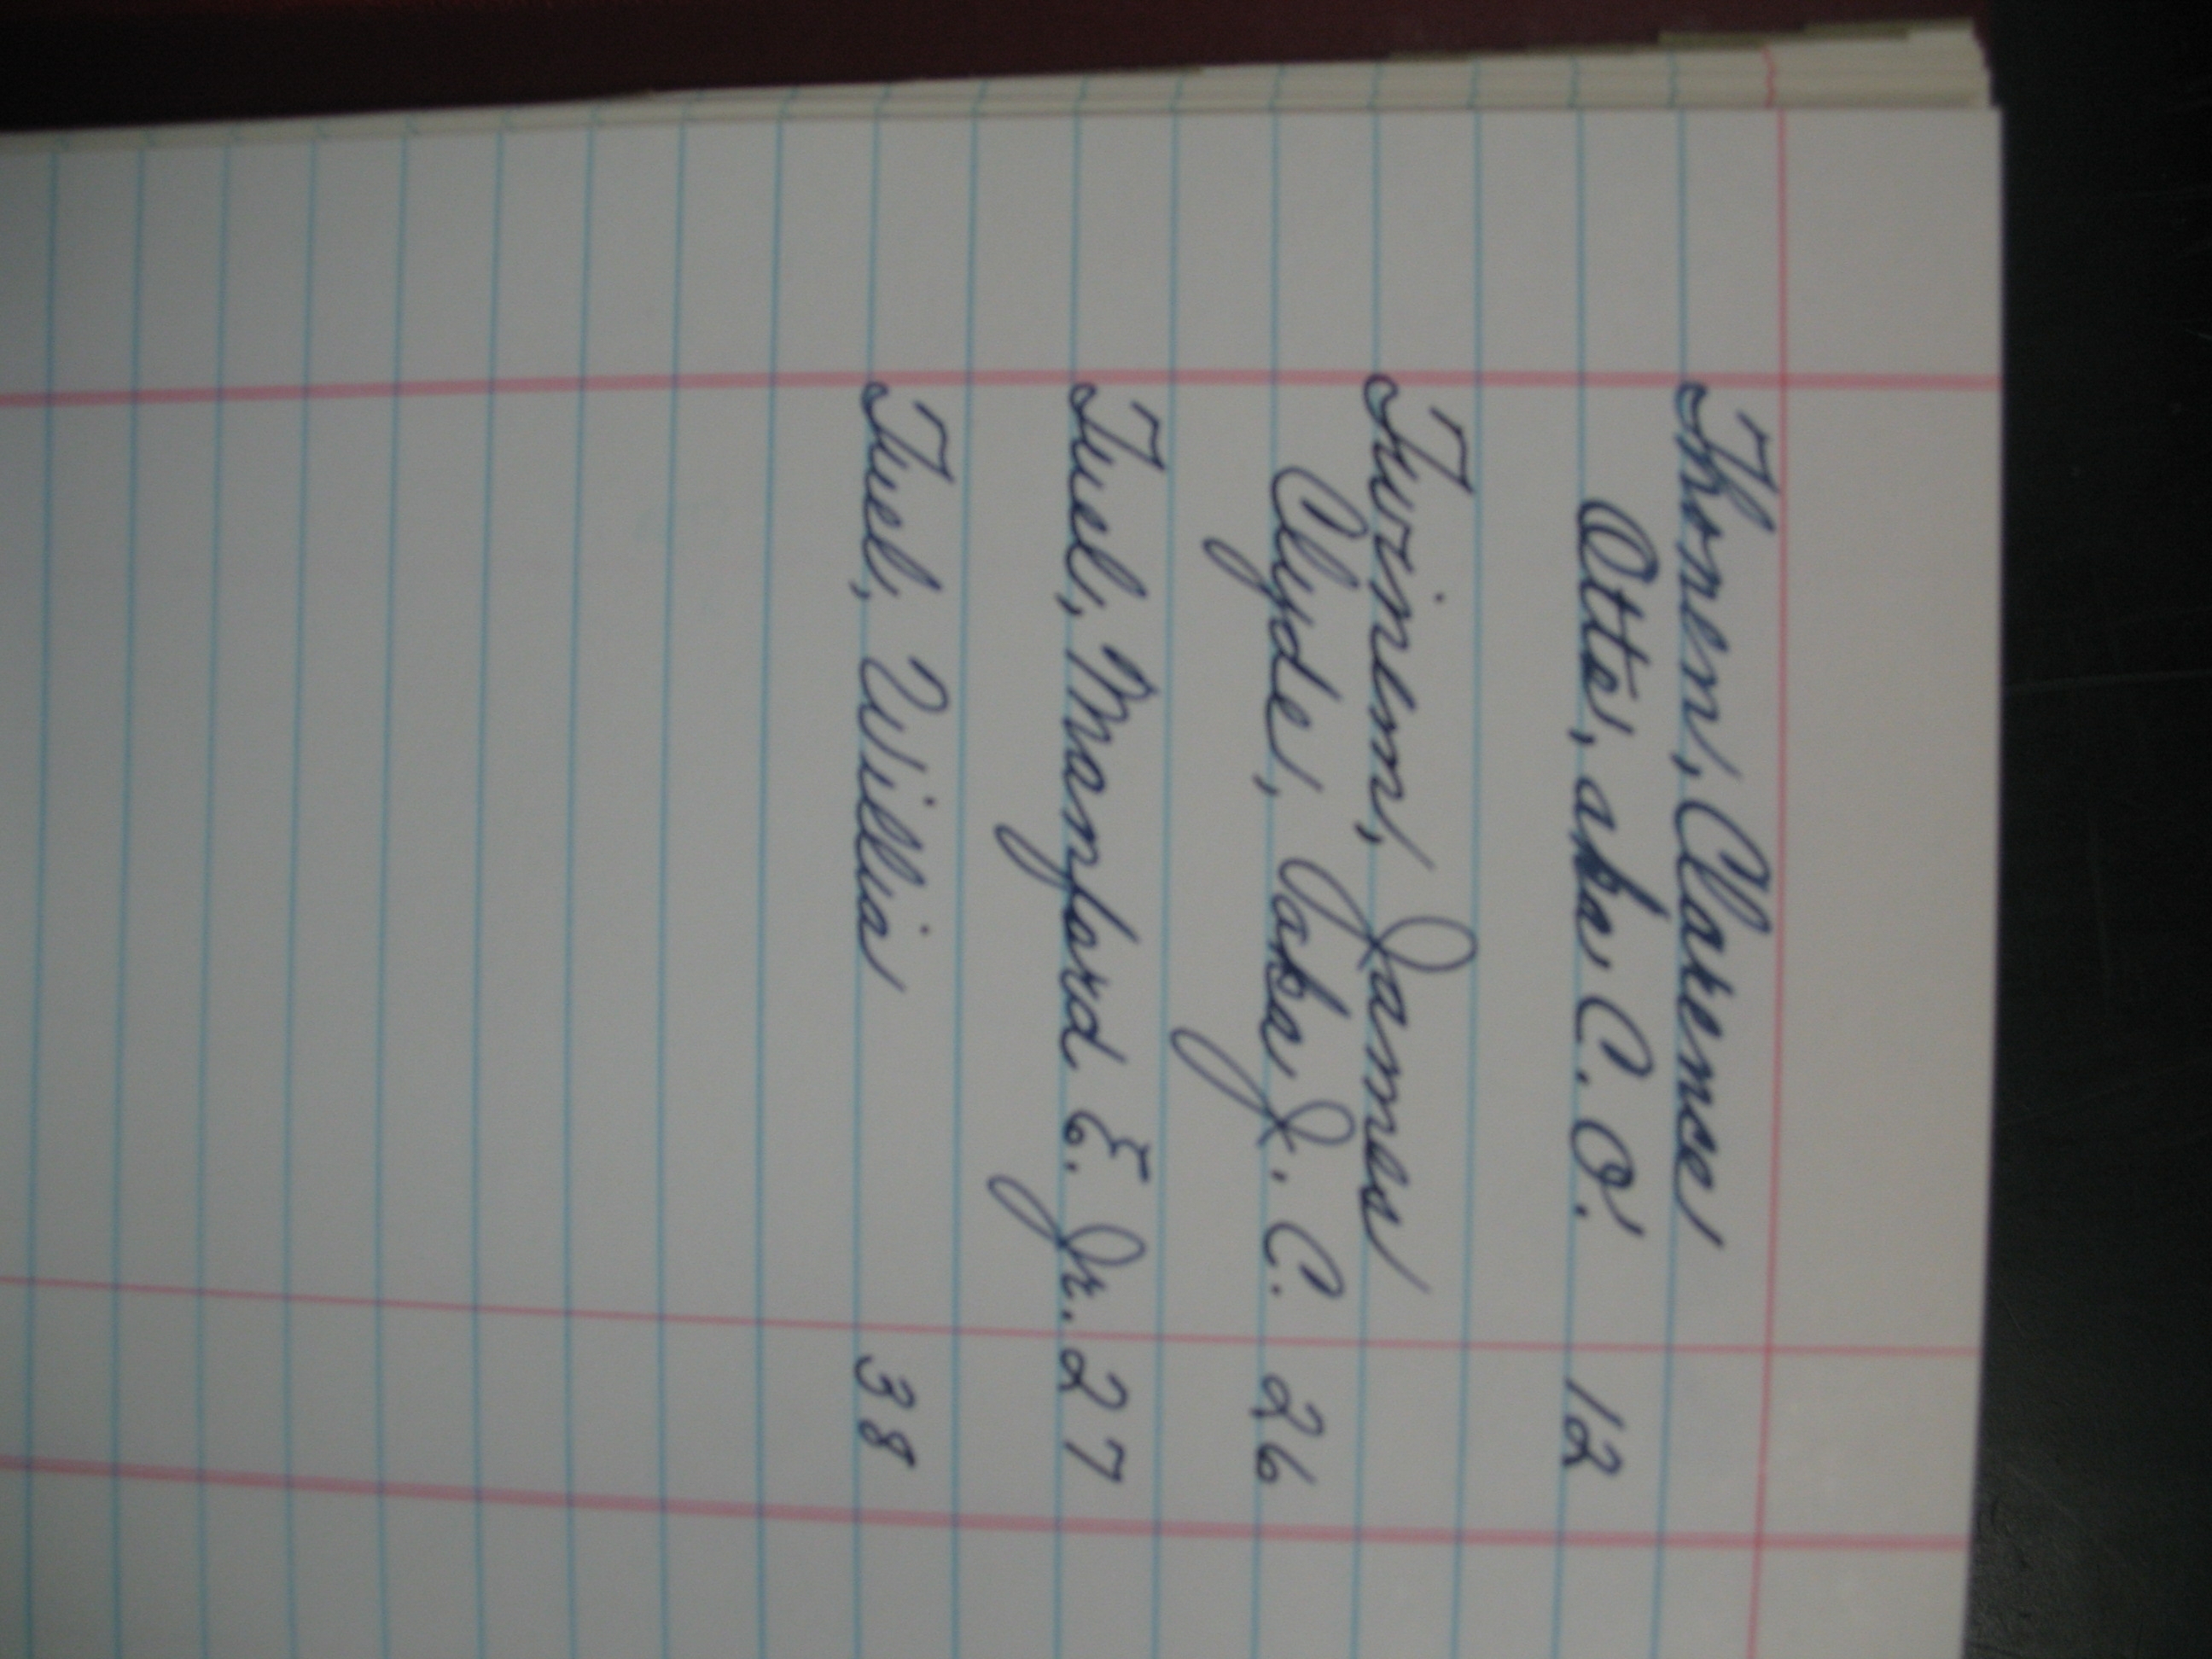 Thorsen, Clarence
Otto, aka, C. O. 12
Twinem, James
Clyde, aka, J. C. 26
Tuel, Manford E. Jr. 27
Tuel, Willia 38